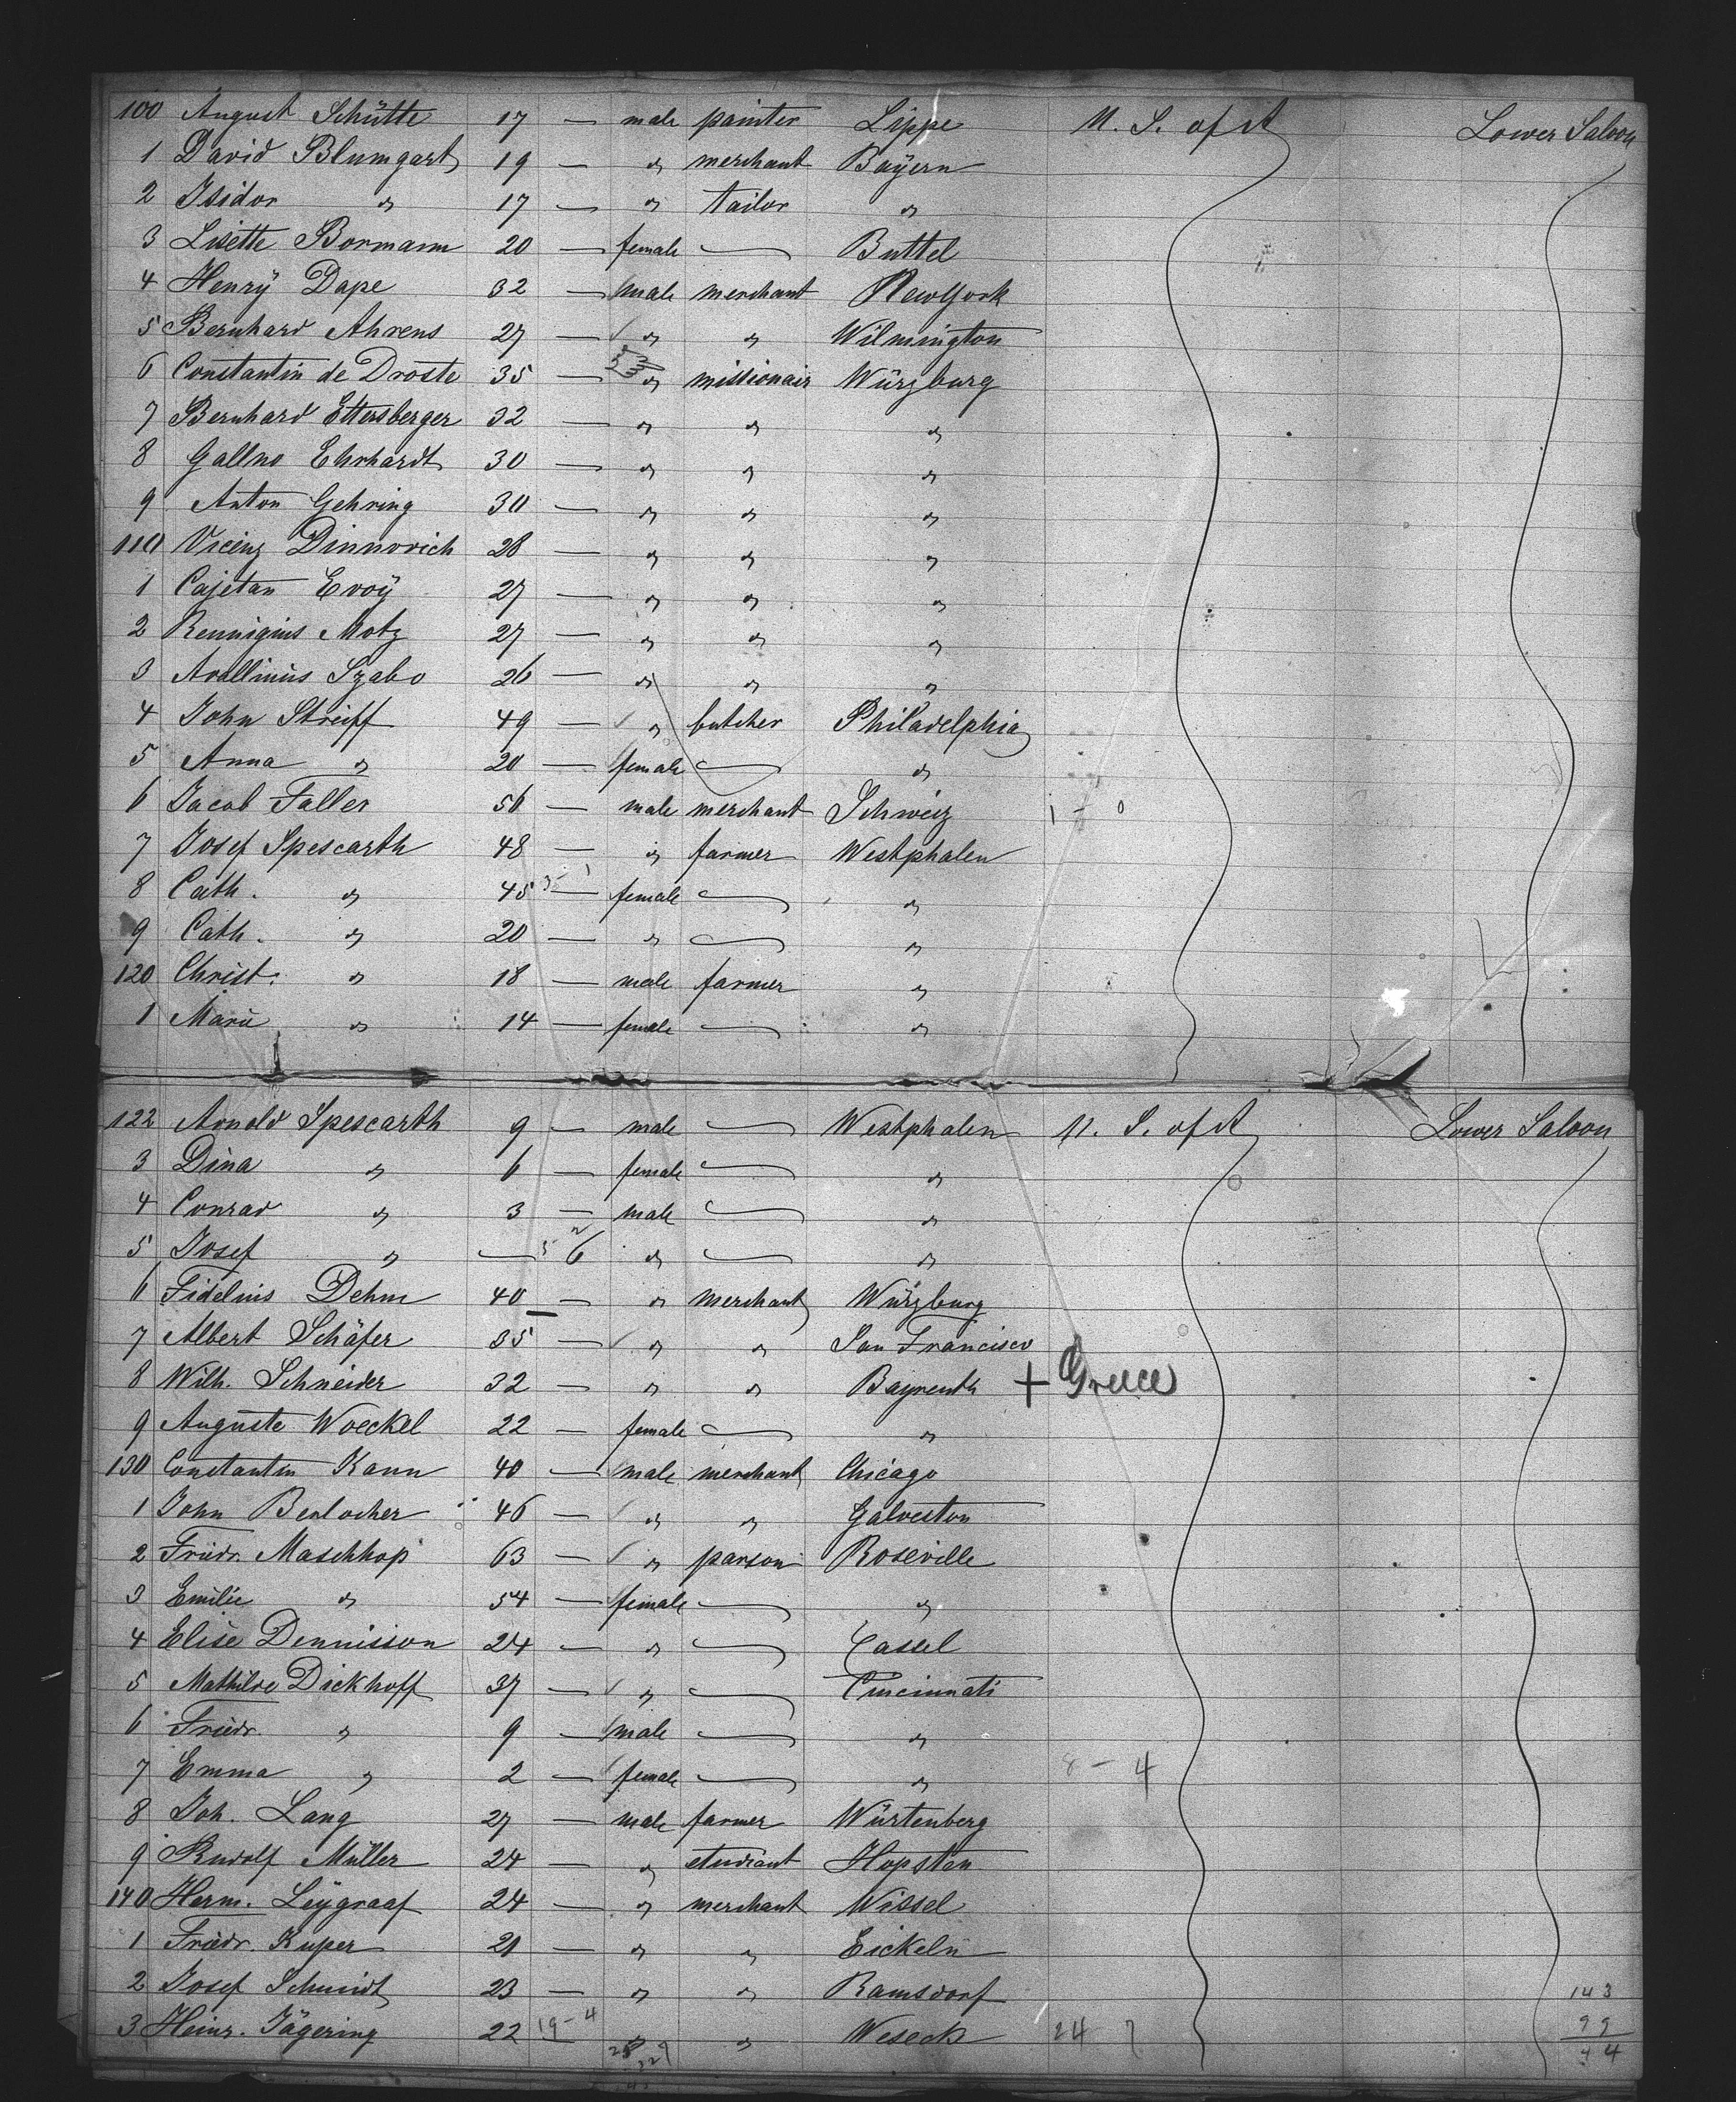 100 August Schütte 17 — male painter Lippe U. S. of A Lower Saloon
1 David Blumgart 19 — " merchant Bayern
2 Isidor " 17 — " tailor "
3 Lisette Bormann 20 — female — Buttel
4 Henry Dape 32 — male merchant New York
5 Bernhard Ahrens 27 — " " Wilmington
6 Constantin de Droste 35 — " missionair Würzburg
7 Bernhard Ettersberger 32 — " " "
8 Gallno Ehrhardt 30 — " " "
9 Anton Gehring 30 — " " "
110 Vicenz Dinnovich 28 — " " "
1 Cajetan Evoy 27 — " " "
2 Remigius Motz 27 — " " "
3 Avellinus Szabo 26 — " " "
4 John Streiff 49 — " butcher Philadelphia
5 Anna " 20 — female — "
6 Jacob Faller 56 — male merchant Schweiz 1 - 0
7 Josef Spescarth 48 — " farmer Westphalen
8 Cath. " 45 — female — "
9 Cath. " 20 — " — "
120 Christ. " 18 — male farmer "
1 Marie " 14 — female — "
122 Arnold Spescarth 9 — male — Westphalen U. S. of A Lower Saloon
3 Dina " 6 — female — "
4 Conrad " 3 — male — "
5 Josef " — 6 " — "
6 Fidelius Dehm 40 — " merchant Würzburg
7 Albert Schäfer 35 — " " San Francisco
8 Wilh. Schneider 32 — " " Bayreuth + Greece
9 Auguste Woeckel 22 — female — "
130 Constantin Kann 40 — male merchant Chicago
1 John Berlocher 46 — " " Galveston
2 Friedr. Maschhop 63 — " parson Roseville
3 Emilie " 54 — female — "
4 Elise Dennisson 24 — " — Cassel
5 Mathilde Dickhoff 37 — " — Cincinnati
6 Friedr. " 9 — male — "
7 Emma " 2 — female — " 8 - 4
8 Joh. Lang 27 — male farmer Würtenberg
9 Rudolf Müller 24 — " etudiant Hopsten
140 Herm. Leygraaf 24 — " merchant Wissel
1 Friedr. Kuper 21 — " " Eickeln
2 Josef Schmidt 23 — " " Ramsdorf 143
3 Heinr. Jägering 22 19 - 4 " " Weseck 24 7 99
44